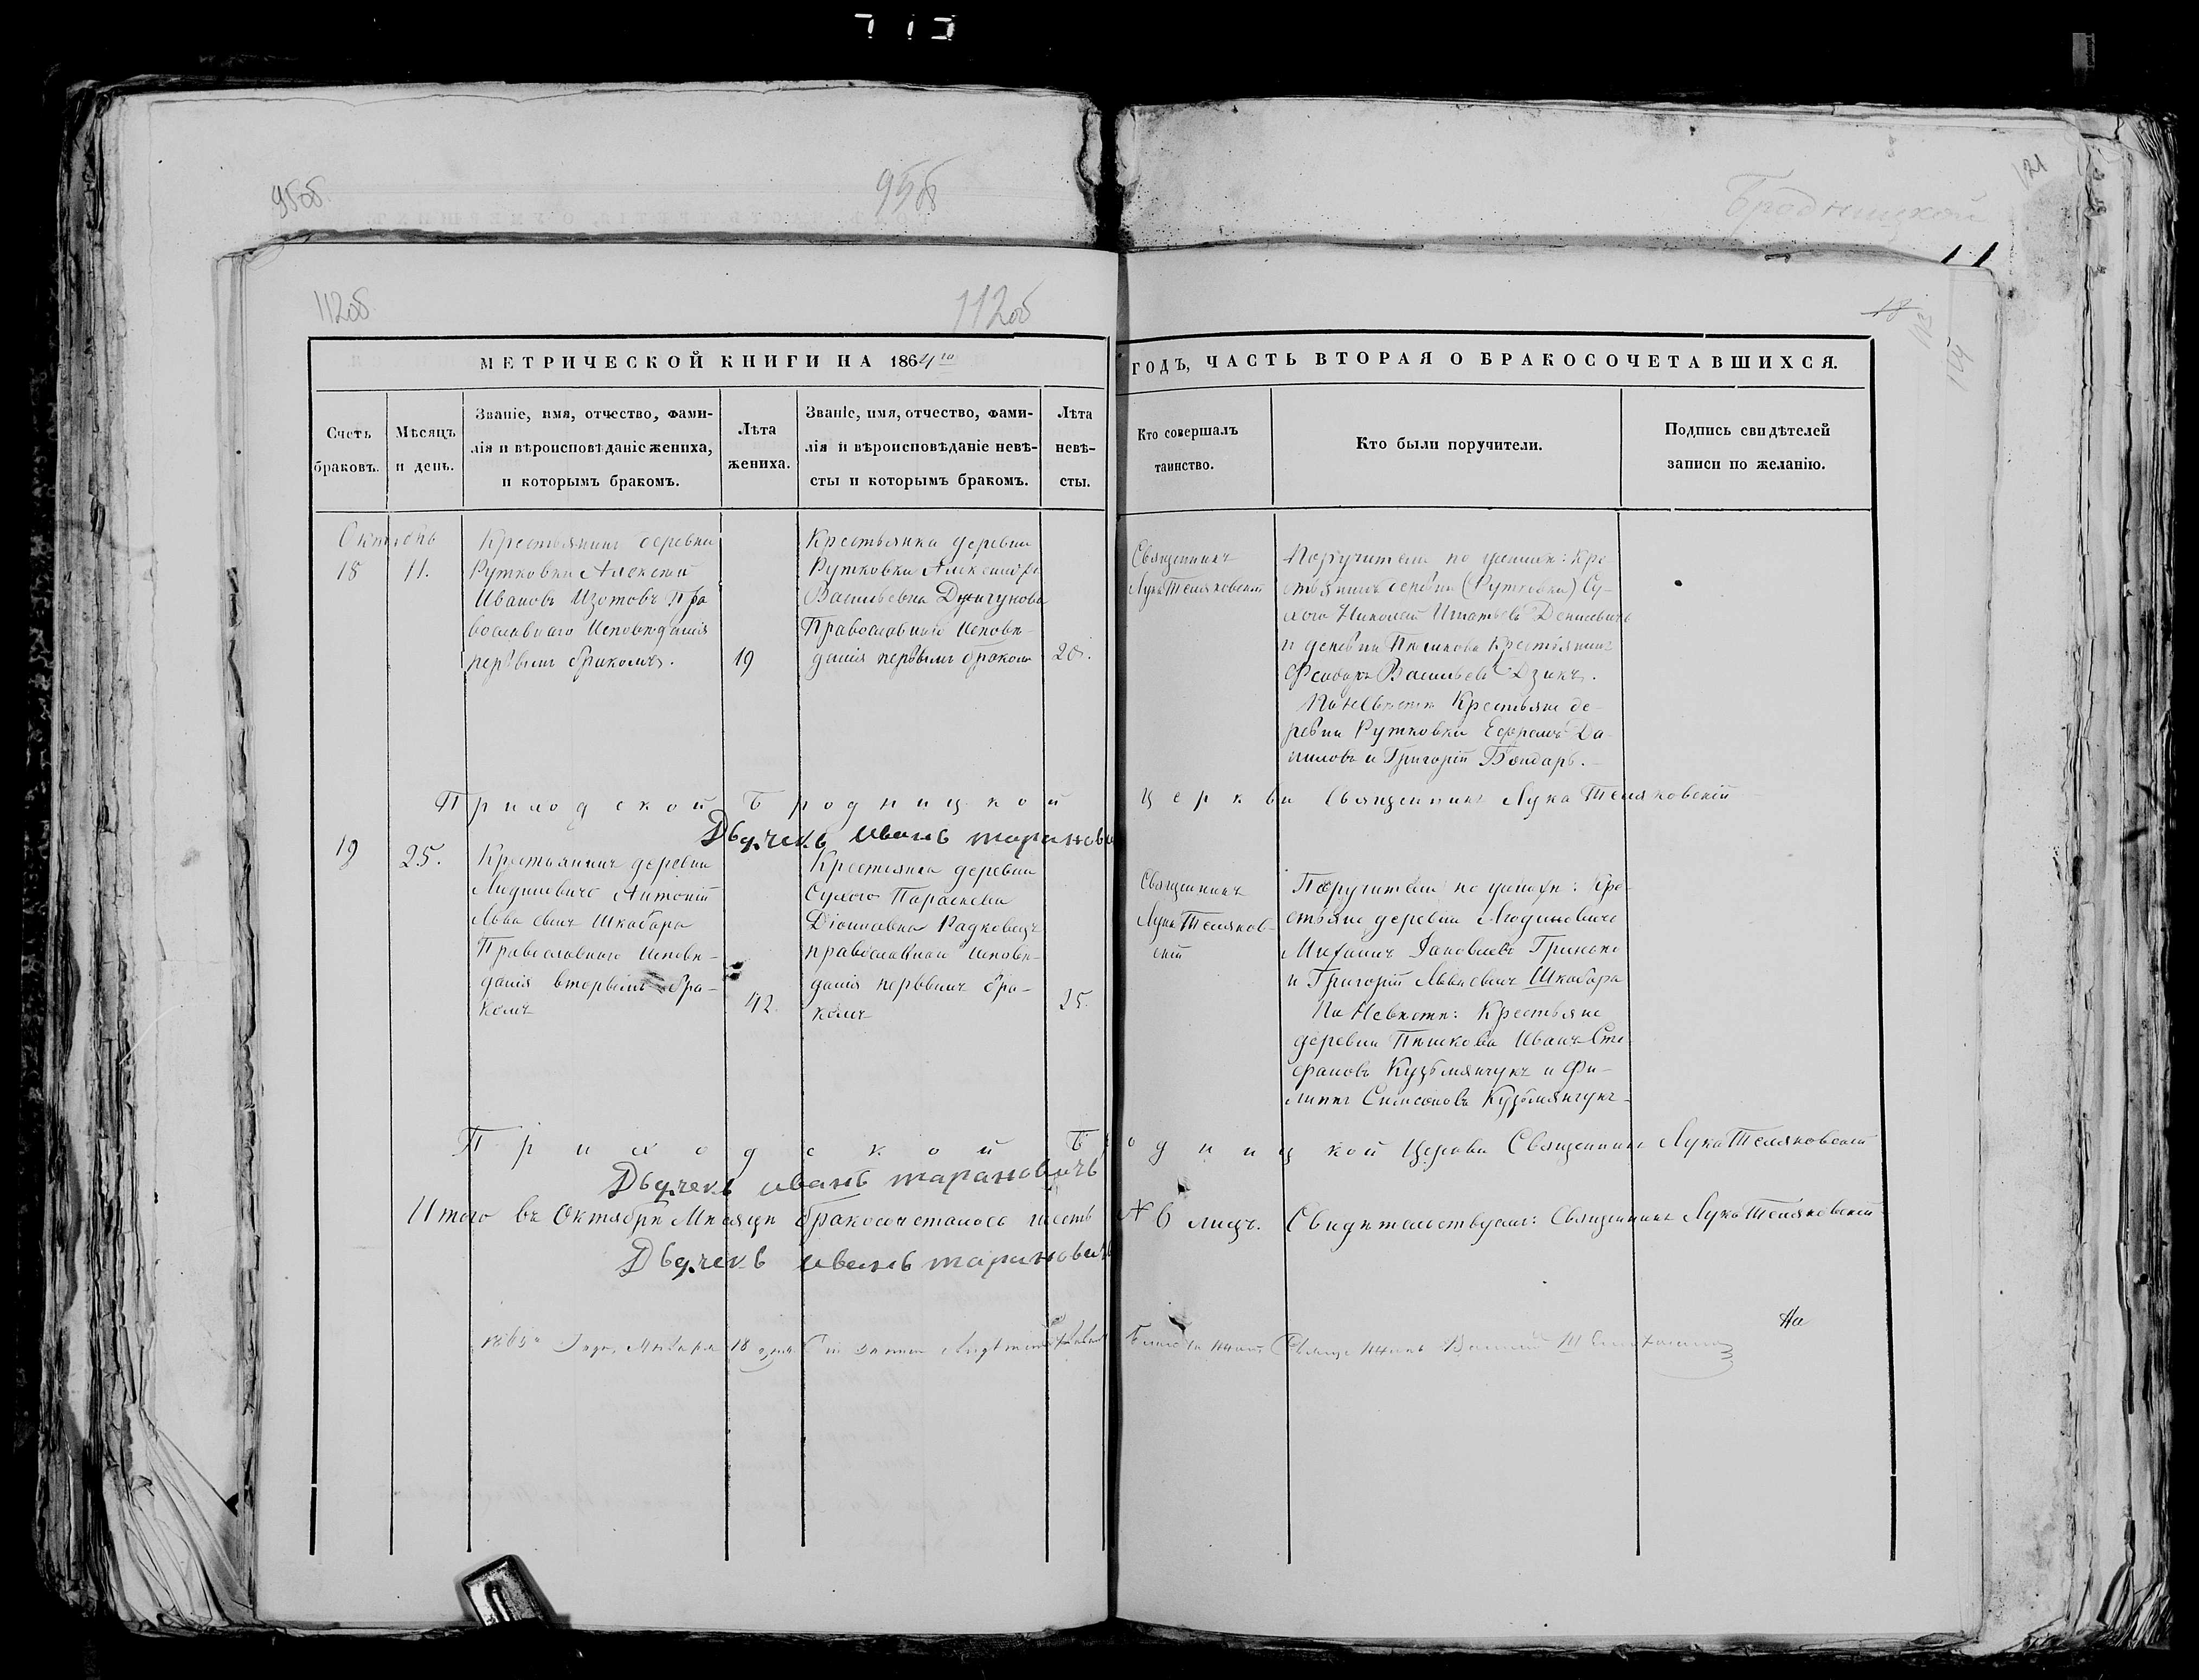 95об.
95об
Бродницкой
121
112об
112об
18
МЕТРИЧЕСКОЙ КНИГИ НА 1864го
ГОДЪ, ЧАСТЬ ВТОРАЯ О БРАКОСОЧЕТАВШИХСЯ.
Счетъ
браковъ.
Мѣсяцъ
и день.
Званіе, имя, отчество, фами-
лія и вѣроисповѣданіе жениха,
и которымъ бракомъ.
Лѣта
жениха.
Званіе, имя, отчество, фами-
лія и вѣроисповѣданіе невѣ-
сты и которымъ бракомъ.
Лѣта
невѣ-
сты.
Кто совершалъ
таинство.
Кто были поручители.
Подпись свидѣтелей
записи по желанію.
Октябрь
18
11.
Крестьянинъ деревни
Рутковки Алексей
Ивановъ Изотовъ Пра
вославнаго Исповѣданія
первымъ бракомъ.
19
Крестьянка деревни
Рутковки Александра
Васильевна
Православнаго Исповѣ-
данія первымъ бракомъ
20.
Священникъ
Лука Теляковскій
Поручители по жениху: Кре
стьянинъ деревни (Рутковки) Су-
хого Николай Игнатьевъ Денисевичъ
и деревни Пешкова Крестьянинъ
Феодоръ Васильевъ Дзикъ.
По Невѣстѣ Крестьяне де-
ревни Рутковки Ефремъ Да-
ниловъ и Григорій Бондарь.
Приходской Бродницкой церкви Священникъ Лука Теляковскій
Дьячекъ иванъ тарановичъ
19
25.
Крестьянинъ деревни
Людиневичъ Антоній
Шкабара
Православнаго Исповѣ-
данія вторымъ бра-
комъ
42.
Крестьянка деревни
Сухого Параскева
Діонисовна Радковецъ
православнаго Исповѣ-
данія первымъ бра-
комъ
25.
Священникъ
Лука Теляков-
скій
Поручители по жениху: Кре-
стьяне деревни Людиневичъ
Михаилъ Іаковлевъ Гринько
и Григорій Шкабара
По Невѣстѣ: Крестьяне
деревни Пешкова Иванъ Сте-
фановъ Кузьмянчукъ и Фи-
липпъ Симеоновъ Кузьмянчукъ
Приходской Бродницкой Церкви Священникъ Лука Теляковскій
Дьячекъ иванъ тарановичъ
Итого въ Октябрѣ Мѣсяцѣ бракосочеталось шесть 6 лицъ. Свидѣтельствуемъ: Священникъ Лука Теляковскій
Дьячекъ иванъ тарановичъ
На
1865го Года, Января 18 дня